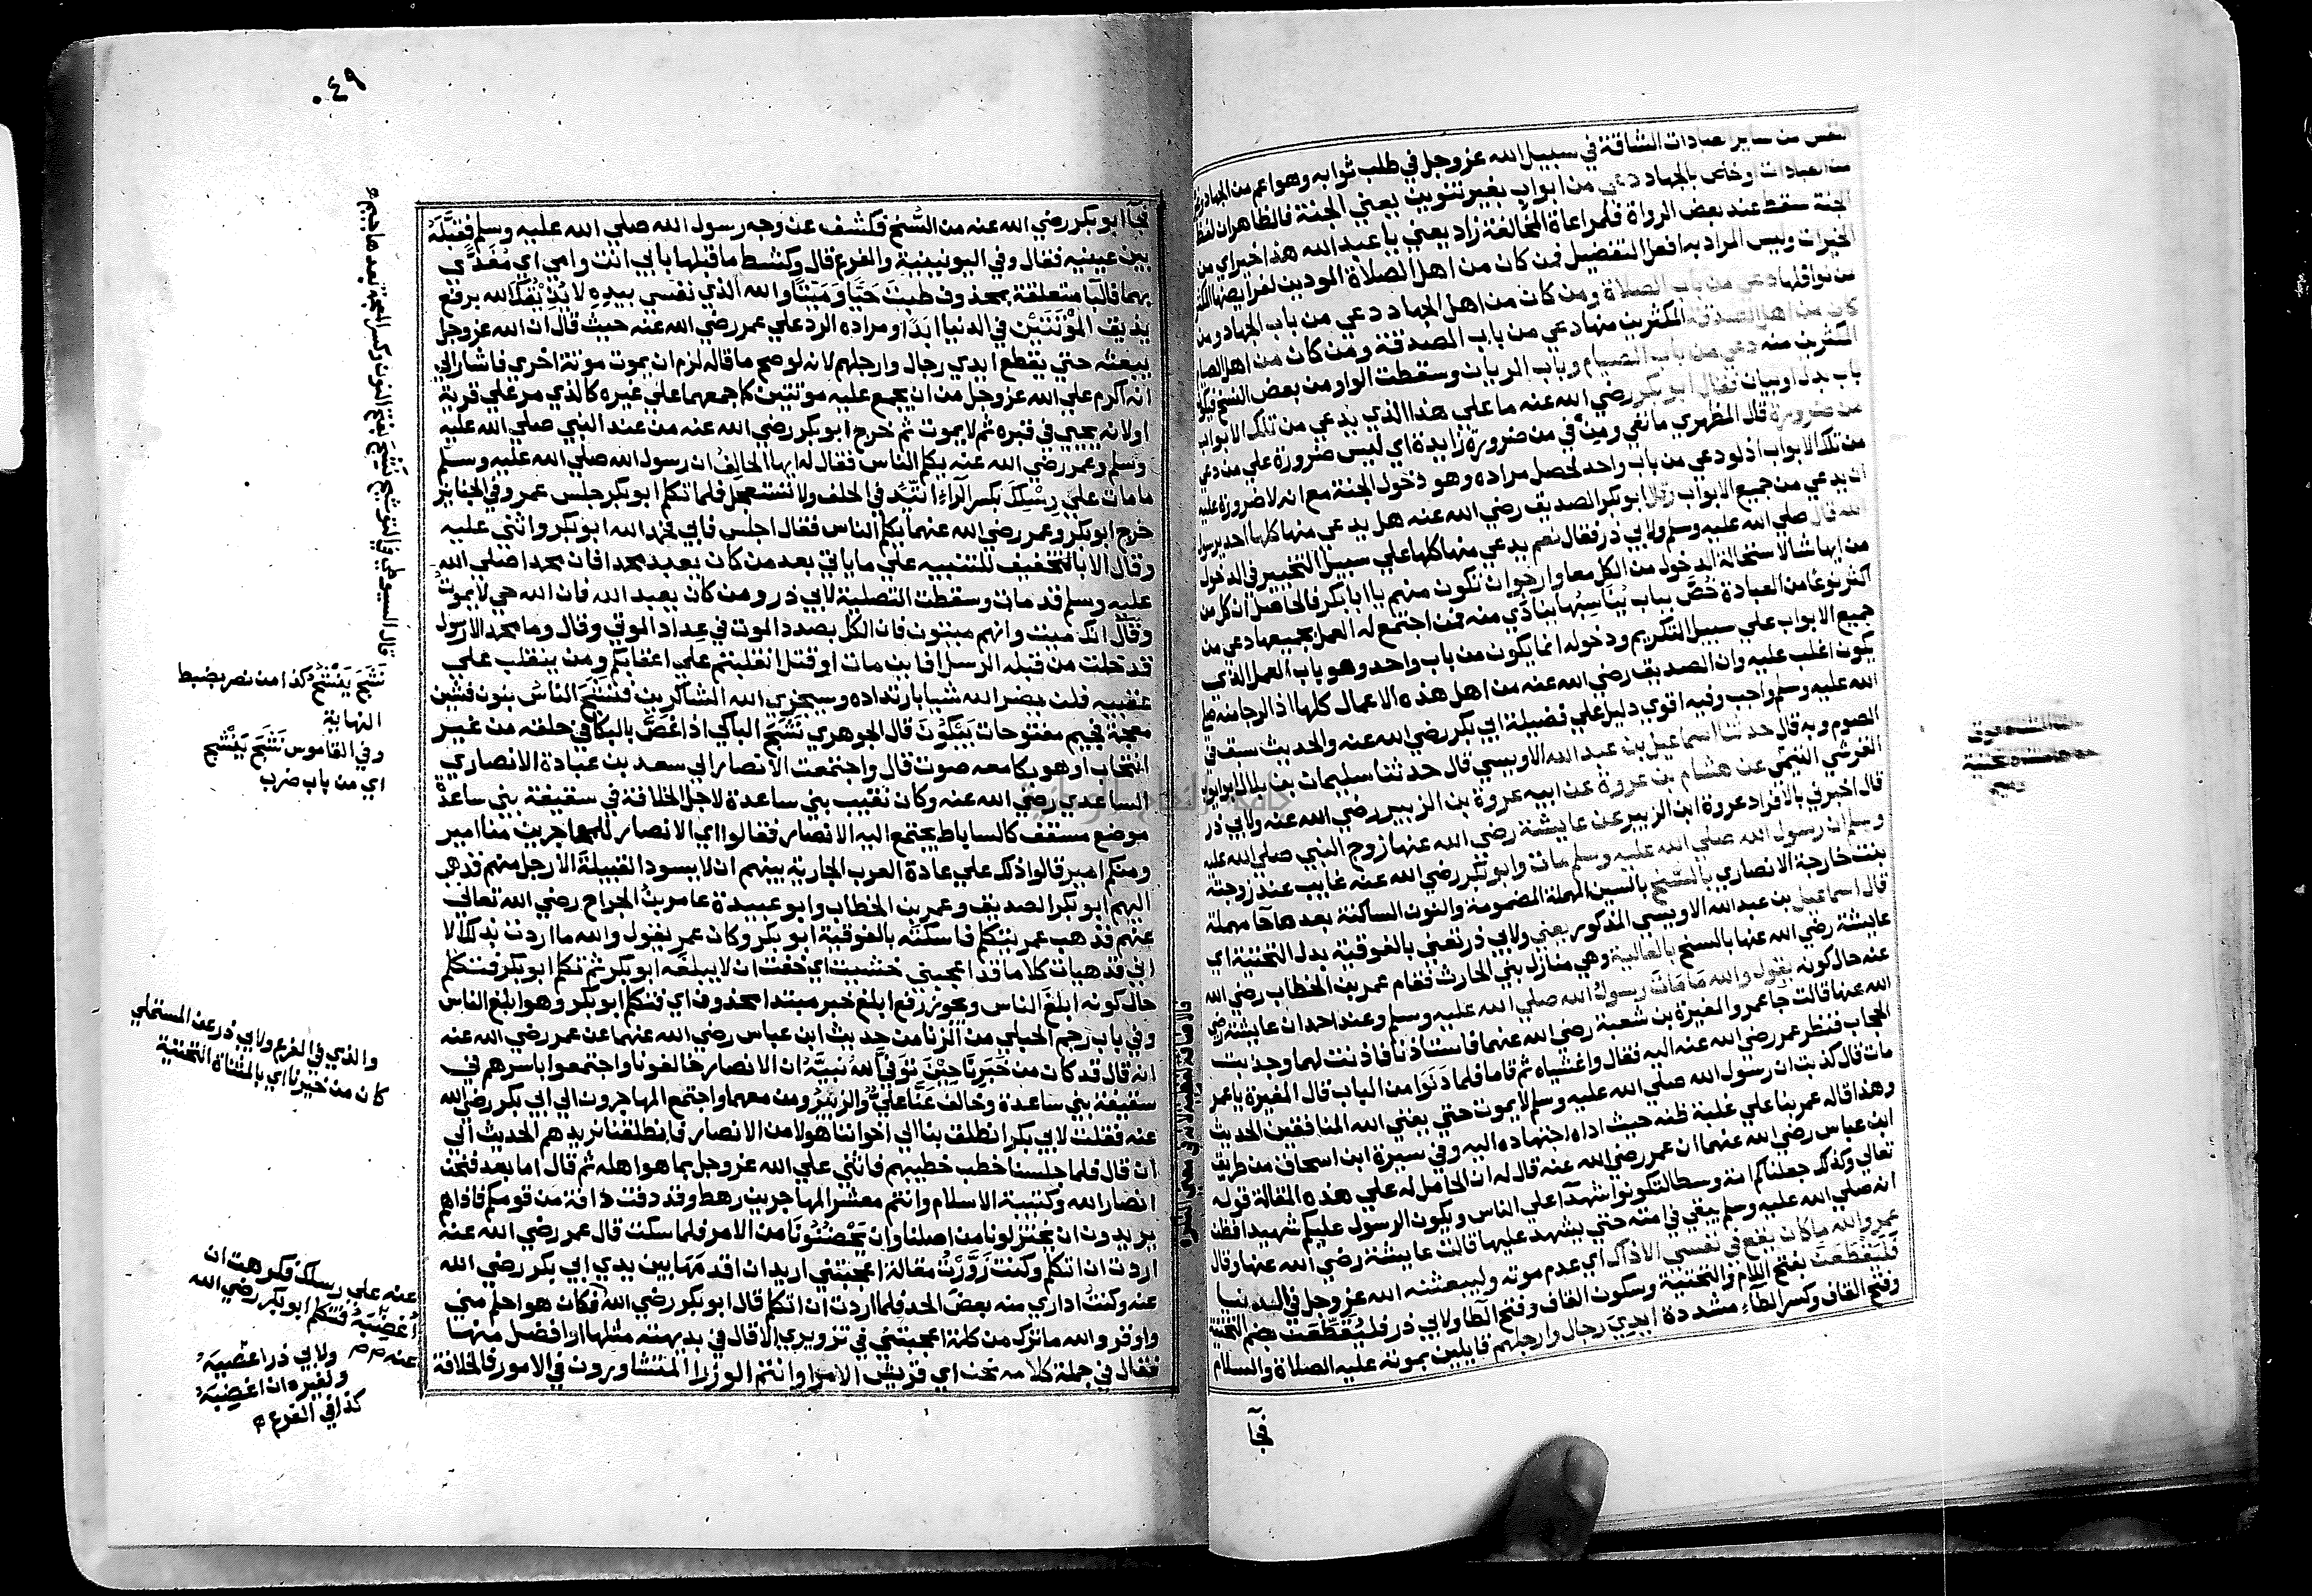 النفس من ساير العبادات الشاقة في سبيل الله عز وجل في طلب ثوابه وهو اعم من الجهاد
من العبادات او خص بالجهاد دعي من ابواب بغير تنوين يعني الجنة فالظاهر ان لفظ
الجنة سقط عند بعض الرواة فلمراعاة المخالفة زاد يعني يا عبد الله هذا خير اي من
الخيرات وليس المراد به افعل التفضيل فمن كان من اهل الصلاة المودين لفرايضها
من نوافلها دعي من باب الصلاة ومن كان من اهل الجهاد دعي من باب الجهاد ومن
كان من اهل الصدقة المكثرين منها دعي من باب الصدقة ومن كان من اهل
المكثرين منه دعي من باب الصيام وباب الريان وسقطت الواو من بعض النسخ
باب بدل او بيان فقال ابو بكر رضي الله عنه ما علي هذا الذي يدعي من تلك الابواب
من ضرورة قال المظهري ما نفي ومن في من ضرورة زايدة اي ليس ضرورة علي من دعي
من تلك الابواب اذ لو دعي من باب واحد لحصل مراده وهو دخول الجنة مع انه لا ضرورة عليه
ان يدعي من جميع الابواب وقال ابو بكر الصديق رضي الله عنه هل يدعي منها كلها احد يرسول
الله قال صلي الله عليه وسلم ولابي ذر فقال نعم يدعي منها كلها علي سبيل التخيير في الدخول
من ايها شا لاستحالة الدخول من الكل معا وارجوا ان تكون منهم يا ابا بكر فالحاصل ان كل من
اكثر نوعا من العبادة خص بباب يناسبها ينادي منه فمن اجتمع له العمل بجميعها دعي من
جميع الابواب علي سبيل التكريم ودخوله انما يكون من باب واحد وهو باب العمل الذي
يكون اغلب عليه وان الصديق رضي الله عنه من اهل هذه الاعمال كلها اذ الرجا منه
الله عليه وسلم واجب وفيه اقوي دليل علي فضيلة ابي بكر رضي الله عنه والحديث سبق في
الصوم وبه قال حدثنا اسماعيل بن عبد الله الاويسي قال حدثنا سليمان بن بلال
القرشي التيمي عن هشام بن عروة عن ابيه عروة بن الزبير رضي الله عنه ولابي ذر
قال اخبرني بالافراد عروة ابن الزبير عن عايشة رضي الله عنها زوج النبي صلي الله عليه
وسلم ان رسول الله صلي الله عليه وسلم مات وابو بكر رضي الله عنه غايب عند زوجته
بنت خارجة الانصاري بالسنح بالسين المهملة المضمومة والنون الساكنة بعدها حا مهملة
قال اسماعيل بن عبد الله الاويسي المذكور يعني ولابي ذر تعني بالفوقية بدل التحتية اي
عايشة رضي الله عنها بالسنح بالعالية وهي منازل بني الحارث فقام عمر بن الخطاب رضي الله
عنه حال كونه يقول والله ما مات رسول الله صلي الله عليه وسلم وعند احمد ان عايشة رضي
الله عنها قالت جا عمر والمغيرة بن شعبة رضي الله عنهما فاستاذنا فاذنت لهما وجذبت
الحجاب فنظر عمر رضي الله عنه اليه فقال واغشياه ثم قاما فلما دنوا من الباب قال المغيرة يا عمر
مات قال كذبت ان رسول الله صلي الله عليه وسلم لا يموت حتي يفني الله المنافقين الحديث
وهذا قاله عمر بنا علي غلبة ظنه حيث اداه اجتهاده اليه وفي سيرة ابن اسحاق من طريق
ابن عباس رضي الله عنهما ان عمر رضي الله عنه قال له ان الحامل له علي هذه المقالة قوله
تعالي وكذلك جعلناكم امة وسطا لتكونوا شهدآ علي الناس ويكون الرسول عليكم شهيدا فظن
انه صلي الله عليه وسلم يبقي في امته حتي يشهد عليها قالت عايشة رضي الله عنها وقال
عمر والله ما كان يقع في نفسي الا ذاك اي عدم موته وليبعثنه الله عز وجل في الدنيا
فليقطعن بفتح اللام والتحتية وسكون القاف وفتح الطا ولابي ذر فليقطعن بضم التحتية
وفتح القاف وكسر الطآء مشددة ايدي رجال وارجلهم قايلين بموته عليه الصلاة والسلام
فجآ
٠٤٩
فجآ ابو بكر رضي الله عنه من السنح فكشف عن وجه رسول الله صلي الله عليه وسلم فقبله
بين عينيه فقال وفي اليونينية والفرع قال وكشط ما قبلها بابي انت وامي اي مفدي
بهما فالبا متعلقة بمحذوف طبت حيا وميتا والله الذي نفسي بيده لا يذيقك الله برفع
يذيق الموتتين في الدنيا ابدا ومراده الرد علي عمر رضي الله عنه حيث قال ان الله عز وجل
يبعثه حتي يقطع ايدي رجال وارجلهم لانه لو صح ما قاله لزم ان يموت موتة اخري فاشار الي
انه اكرم علي الله عز وجل من ان يجمع عليه موتتين كما جمعهما علي غيره كالذي مر علي قرية
او لانه يحيي في قبره ثم لا يموت ثم خرج ابو بكر رضي الله عنه من عند النبي صلي الله عليه
وسلم وعمر رضي الله عنه يكلم الناس فقال له ايها الحالف ان رسول الله صلي الله عليه وسلم
ما مات علي رسلك بكسر الرآء اتئد في الحلف ولا تستعجل فلما تكلم ابو بكر جلس عمر وفي الجنايز
خرج ابو بكر وعمر رضي الله عنهما يكلم الناس فقال اجلس فابي فحمد الله ابو بكر واثني عليه
وقال الا بالتخفيف للتنبيه علي ما ياتي بعد من كان يعبد محمدا فان محمدا صلي الله
عليه وسلم قد مات وسقطت التصلية لابي ذر ومن كان يعبد الله فان الله حي لا يموت
وقال انك ميت وانهم ميتون فان الكل بصدد الموت في عداد الموتي وقال وما محمد الا رسول
قد خلت من قبله الرسل افاين مات او قتل انقلبتم علي اعقابكم ومن ينقلب علي
عقبيه فلن يضر الله شيا بارتداده وسيجزي الله الشاكرين فنشج الناس بنون فشين
معجمة فجيم مفتوحات يبكون قال الجوهري نشج الباكي اذا غص بالبكا في حلقه من غير
انتحاب او هو بكا معه صوت قال واجتمعت الانصار الي سعد بن عبادة الانصاري
الساعدي رضي الله عنه وكان نقيب بني ساعدة لاجل الخلافة في سقيفة بني ساعدة
موضع مسقف كالساباط يجتمع اليه الانصار فقالوا اي الانصار للمهاجرين منا امير
ومنكم امير قالوا ذلك علي عادة العرب الجارية بينهم ان لا يسود القبيلة الا رجل منهم فذهب
اليهم ابو بكر الصديق وعمر بن الخطاب وابو عبيدة عامر بن الجراح رضي الله تعالي
عنهم فذهب عمر يتكلم فاسكته بالفوقية ابو بكر وكان عمر يقول والله ما اردت بذلك الا
اني قد هيات كلاما قد اعجبني خشيت اي خفت ان لا يبلغه ابو بكر ثم تكلم ابو بكر فتكلم
حال كونه ابلغ الناس ويجوز رفع ابلغ خبر مبتدا محذوف اي فتكلم ابو بكر وهو ابلغ الناس
وفي باب رجم الحبلي من الزنا من حديث ابن عباس رضي الله عنهما عن عمر رضي الله عنه
انه قال قد كان من خبرنا حين توفي الله نبيه ان الانصار خالفونا واجتمعوا باسرهم في
سقيفة بني ساعدة وخالف عنا علي والزبير ومن معهما واجتمع المهاجرون الي ابي بكر رضي الله
عنه فقلت لابي بكر انطلق بنا الي اخواننا هولا من الانصار فانطلقنا نريدهم الحديث الي
ان قال فلما جلسنا خطب خطيبهم فاثني علي الله عز وجل بما هو اهله ثم قال اما بعد فنحن
انصار الله وكتيبة الاسلام وانتم معشر المهاجرين رهط وقد دفت دافة من قومكم فاذا هم
يريدون ان يختزلونا من اصلنا وان يحضنونا من الامر فلما سكت قال عمر رضي الله عنه
اردت ان اتكلم وكنت زورت مقالة اعجبتني اريد ان اقدمها بين يدي ابي بكر رضي الله
عنه وكنت اداري منه بعض الحد فلما اردت ان اتكلم قال ابو بكر رضي الله فكان هو احلم مني
واوقر والله ما ترك من كلمة اعجبتني في تزويري الا قال في بديهته مثلها او افضل منها
فقال في جملة كلامه نحن اي قريش الامرا وانتم الوزرا المتشاورون في الامور فالخلافة
قال السيوطي في التوشيح بفتح النون وكسر المعجمة بعدها جيم
نشج ينشج كذا من نصر بضبط
النهاية
وفي القاموس نشج ينشج
اي من باب ضرب
والذي في الفرع ولابي ذر عن المستملي
كان من خيرنا اي بالمثناة التحتية
عنه علي رسلك فكرهت ان
اغضبه فتكلم ابو بكر رضي الله
عنه
ولابي ذر اعصيه
ولغيره ان اغضبه
كذا في الفرع